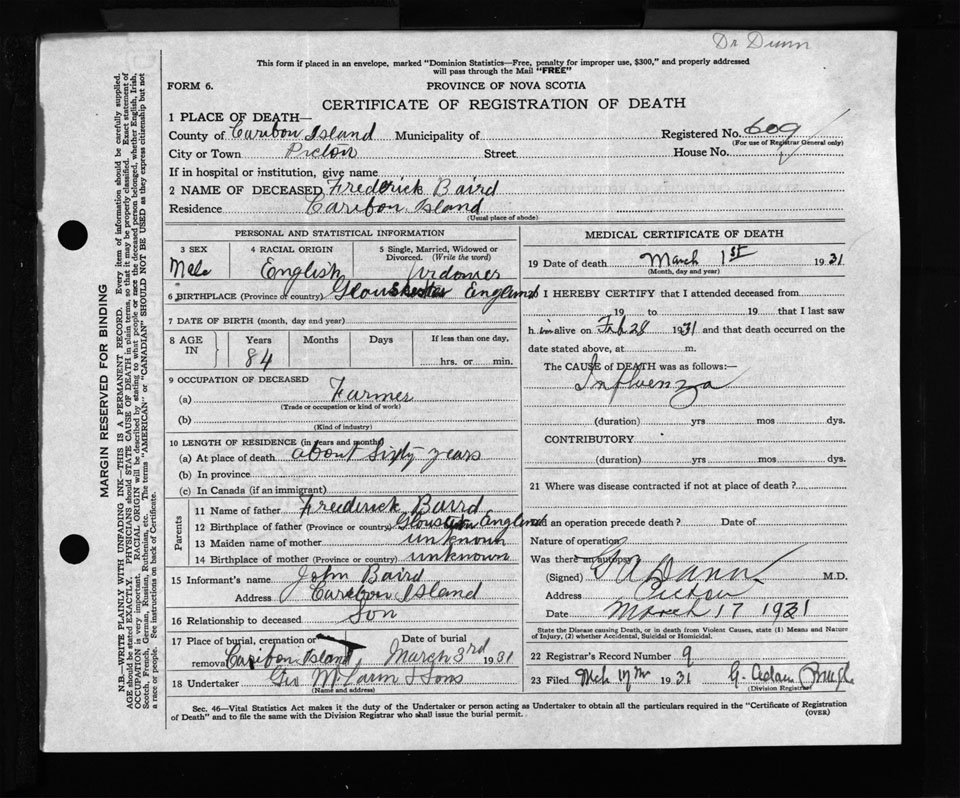 Dr Dunn
This form if placed in an envelope, marked "Dominion Statistics—Free, penalty for improper use, $300," and properly addressed
will pass through the Mail "FREE"
FORM 6.
PROVINCE OF NOVA SCOTIA
CERTIFICATE OF REGISTRATION OF DEATH
1 PLACE OF DEATH—
County of Caribou Island Municipality of
Registered No. 609
(For use of Registrar General only)
City or Town Pictou Street House No.
If in hospital or institution, give name
2 NAME OF DECEASED Frederick Baird
Residence Caribou Island
(Usual place of abode)
PERSONAL AND STATISTICAL INFORMATION
3 SEX
Male
4 RACIAL ORIGIN
English
5 Single, Married, Widowed or
Divorced. (Write the word)
Widower
6 BIRTHPLACE (Province or country) England
7 DATE OF BIRTH (month, day and year)
8 AGE
IN
Years
84
Months
Days
If less than one day,
hrs. or min.
9 OCCUPATION OF DECEASED
(a) Farmer
(Trade or occupation or kind of work)
(b)
(Kind of industry)
10 LENGTH OF RESIDENCE (in years and months)
(a) At place of death about Sixty years
(b) In province
(c) In Canada (if an immigrant)
Parents
11 Name of father Frederick Baird
12 Birthplace of father (Province or country) England
13 Maiden name of mother unknown
14 Birthplace of mother (Province or country) unknown
15 Informant's name John Baird
Address Caribou Island
16 Relationship to deceased Son
17 Place of burial, cremation or
removal Caribou Island
Date of burial
March 3rd 1931
18 Undertaker Geo & Sons
(Name and address)
MEDICAL CERTIFICATE OF DEATH
19 Date of death March 1st 1931
(Month, day and year)
20 I HEREBY CERTIFY that I attended deceased from
19 to 19 that I last saw
h im alive on Feb 28 1931 and that death occurred on
date stated above, at m.
The CAUSE of DEATH was as follows:—
Influenza
(duration) yrs mos dys.
CONTRIBUTORY
(duration) yrs mos dys.
21 Where was disease contracted if not at place of death?
Did an operation precede death? Date of
Nature of operation
Was there an autopsy
(Signed) M.D.
Address Pictou
Date March 17 1931
State the Disease causing Death, or in death from Violent Causes, state (1) Means and Nature
of Injury, (2) whether Accidental, Suicidal or Homicidal.
22 Registrar's Record Number 9
23 Filed Mch 17th 1931 G.
(Division Registrar)
Sec. 46—Vital Statistics Act makes it the duty of the Undertaker or person acting as Undertaker to obtain all the particulars required in the "Certificate of Registration
of Death" and to file the same with the Division Registrar who shall issue the burial permit.
(OVER)
MARGIN RESERVED FOR BINDING
N.B.—WRITE PLAINLY WITH UNFADING INK—THIS IS A PERMANENT RECORD. Every item of information should be carefully supplied.
AGE should be stated EXACTLY. PHYSICIANS should STATE CAUSE OF DEATH in plain terms, so that it may be properly classified. Exact statement of
OCCUPATION is very important. RACIAL ORIGIN will be described by stating to what people or race the deceased person belonged, whether English, Irish,
Scotch, French, German, Russian, Ruthenian, etc. The terms "AMERICAN" or "CANADIAN" SHOULD NOT BE USED as they express citizenship but not
a race or people. See instructions on back of Certificate.